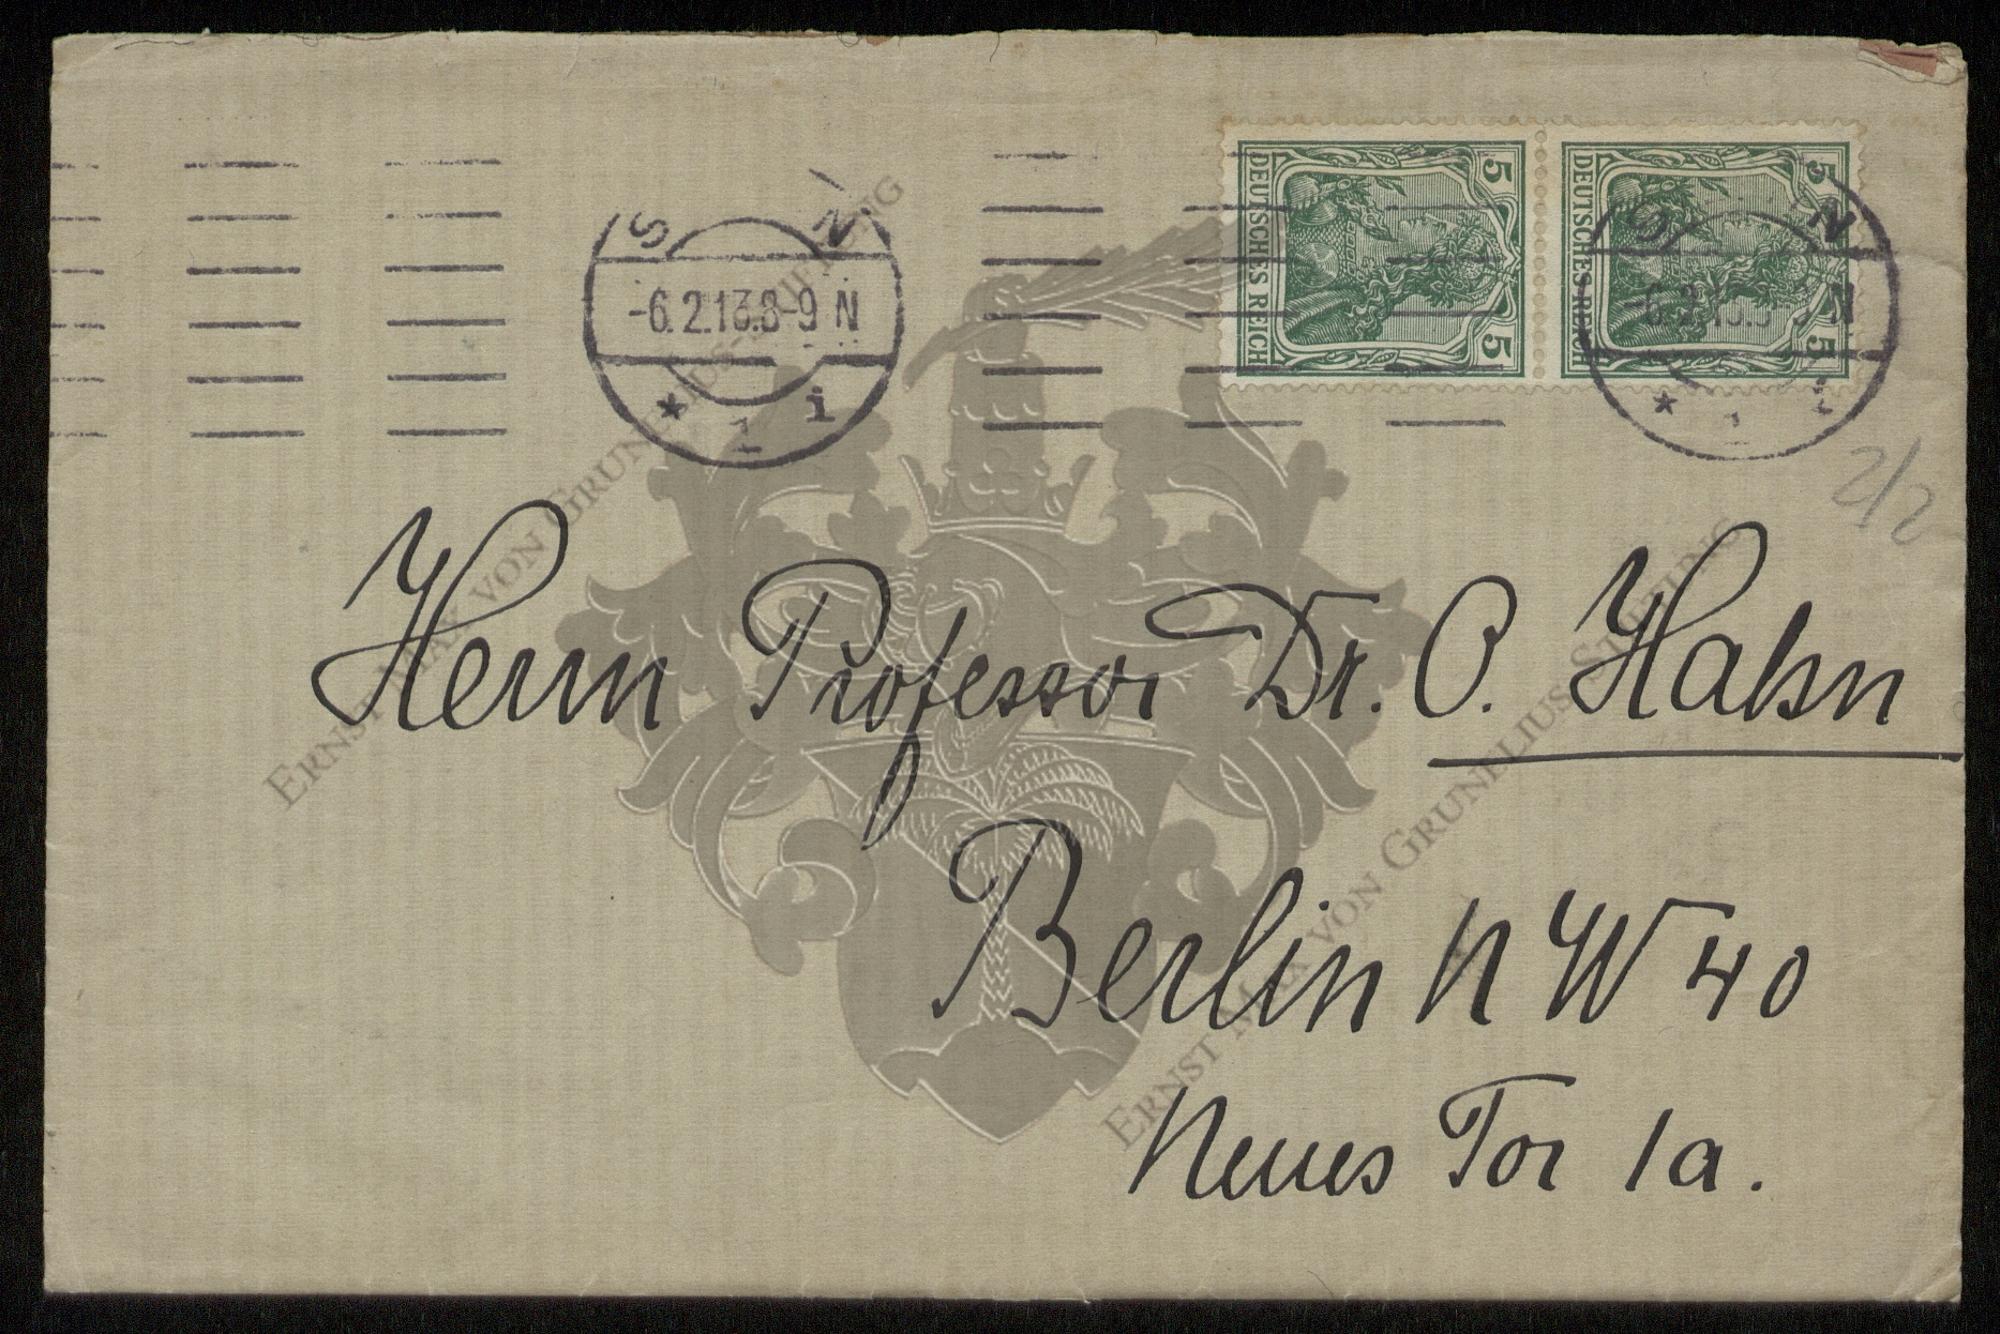 5 5
DEUTSCHES REICH
5 5
DEUTSCHES REICH
S N
-6.2.13.8-9 N
* 1 i
S N
-6.2.13.8-9 N
* 1 i
2/2
Herrn Professor Dr. O. Hahn
Berlin NW 40
Neues Tor 1a.
ERNST MAX VON GRUNELIUS-STIFTUNG
ERNST MAX VON GRUNELIUS-STIFTUNG